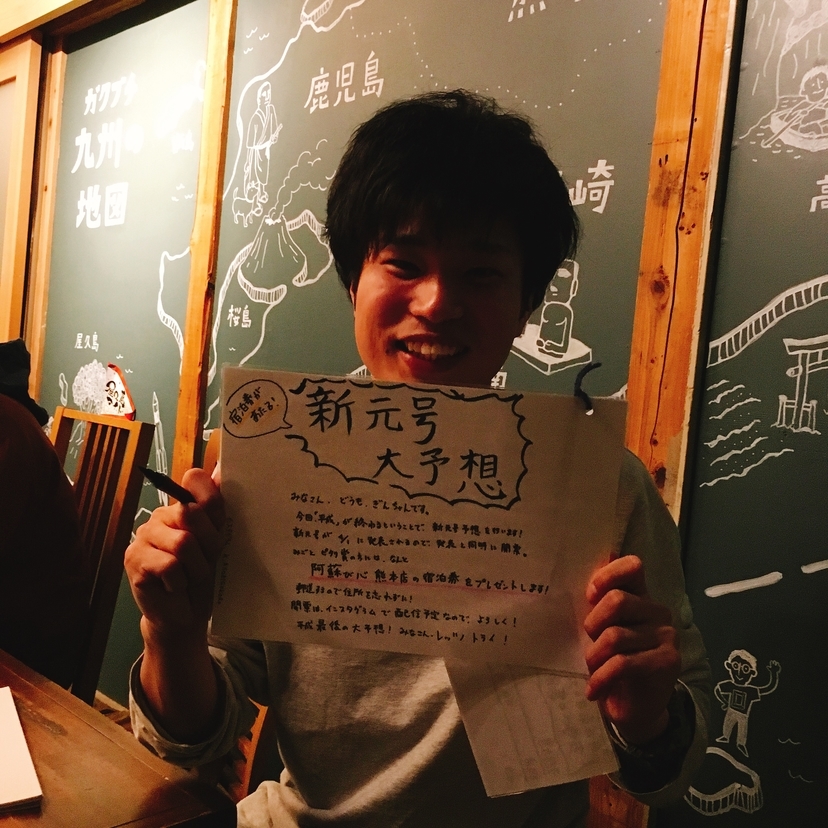 ガクブチ
九州の
地図
屋久島
鹿児島
桜島
崎
宿泊券が
あたる!
新元号
大予想
みなさん、どうも、ぎんちゃんです。
今回「平成」が終わるということで、新元号予想を行います!
新元号が4/1に発表されるので、発表と同時に開票。
みごとピタリ賞の方には、なんと
阿蘇び心 熊本店の宿泊券をプレゼントします!
郵送するので住所を忘れずに!
開票は、インスタグラムで配信予定なので、よろしく!
平成最後の大予想!みなさん、レッツトライ!